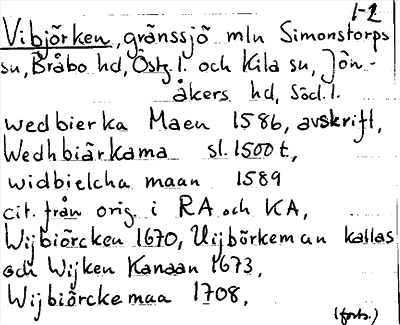 1-2
Vibjörken, gränssjö mln Simonstorps
sn, Bråbo hd, Östg l. och Kila sn, Jön-
åkers hd, Södl.
wedbierka Maen 1586, avskrift,
Wedhbiärkama sl. 1500 t,
widbielcha maan 1589
cit. från orig. i RA och KA,
Wijbiörcken 1670, Uijbörkeman kallas
och Wijken Kanaan 1673,
Wijbiörckemaa 1708,
(forts.)